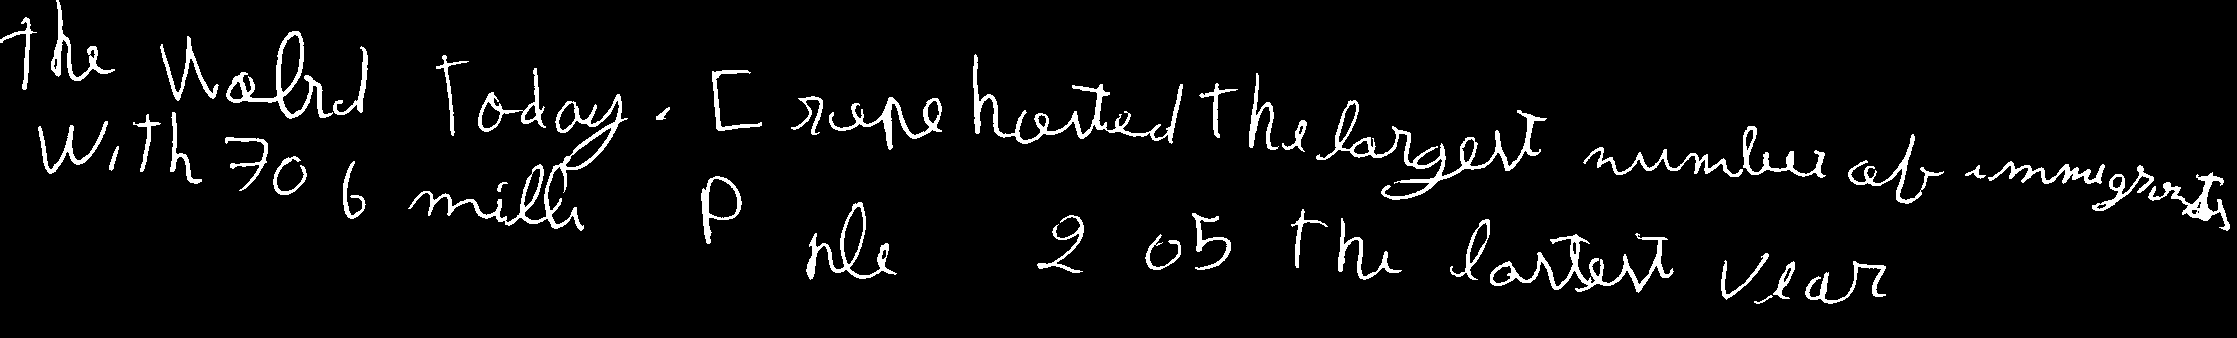 the Wolrd Today. E rope hosted the largest number of immigrants
With 70 6 milli P ple 2 05 the lastest year